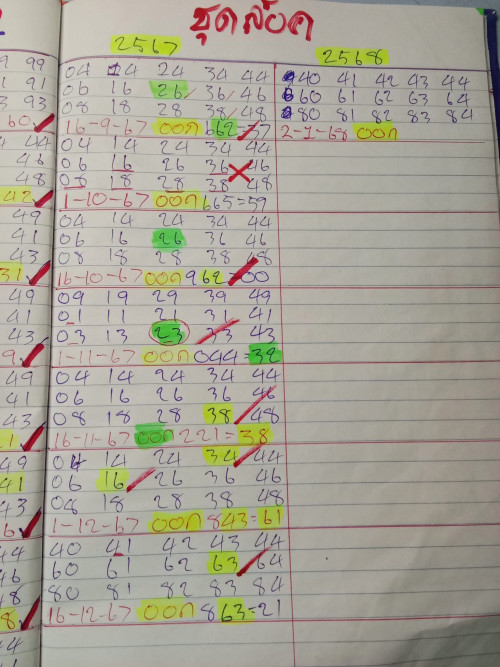 ชุดล๊อค
99 99
91 91
93 93
60
44 44
46
48
42
49
41
43
31
49
41
43
9
49
41
43
21
49
41
43
6
44
46
48
8
2567
04 14 24 34 44
06 16 26 36 46
08 18 28 38 48
16-9-67 ออก 662=37
04 14 24 34 44
06 16 26 36 46
08 18 28 38 48
1-10-67 ออก 665=59
04 14 24 34 44
06 16 26 36 46
08 18 28 38 48
16-10-67 ออก 962=00
09 19 29 39 49
01 11 21 31 41
03 13 23 33 43
1-11-67 ออก 044=32
04 14 24 34 44
06 16 26 36 46
08 18 28 38 48
16-11-67 ออก 221=38
04 14 24 34 44
06 16 26 36 46
08 18 28 38 48
1-12-67 ออก 843=61
40 41 42 43 44
60 61 62 63 64
80 81 82 83 84
16-12-67 ออก 863=21
2568
40 41 42 43 44
60 61 62 63 64
80 81 82 83 84
2-1-68 ออก